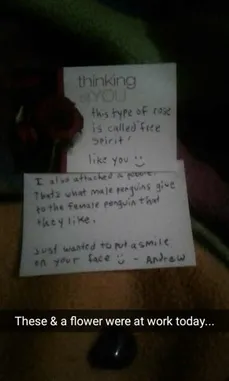 thinking
of YOU
this type of rose
is called 'free
spirit'
like you
I also attached a
Thats what male penguins give
to the female penguin that
they like.
Just wanted to put a smile
on your face - Andrew
These & a flower were at work today...